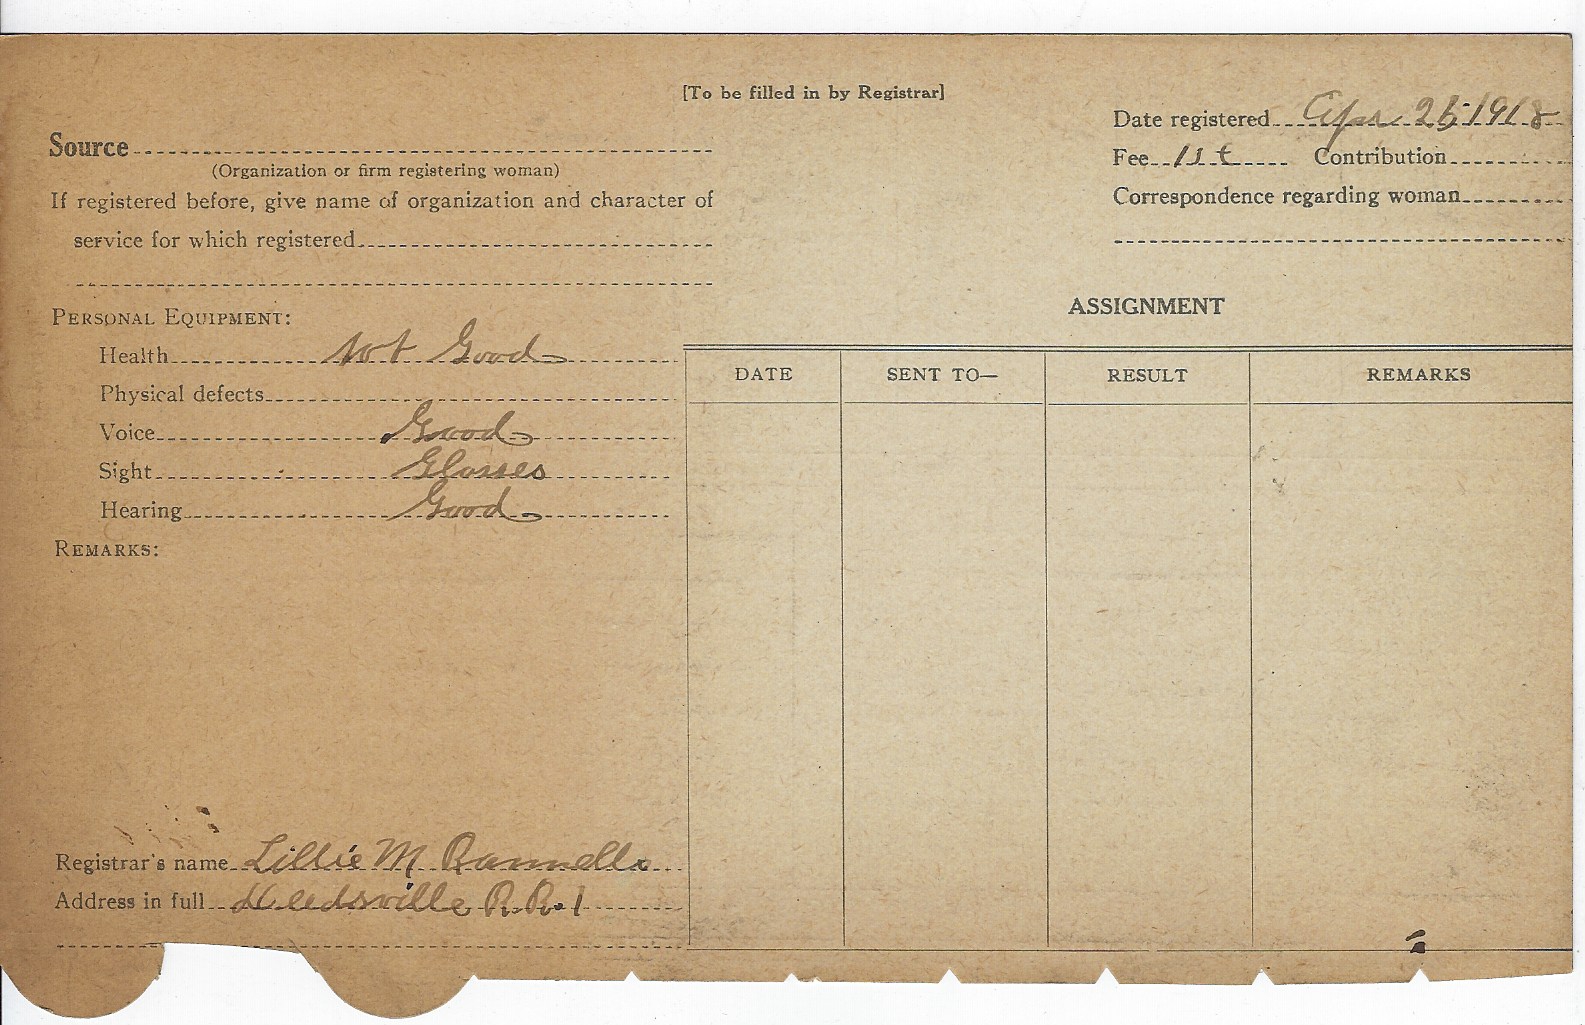 [To be filled in by Registrar]
Date registered Apr 25 1918
Source
(Organization or firm registering woman)
Fee 1st Contribution
If registered before, give name of organization and character of
service for which registered
Correspondence regarding woman
PERSONAL EQUIPMENT:
ASSIGNMENT
Health Not Good
Physical defects
Voice Good
Sight Glasses
Hearing Good
DATE SENT TO— RESULT REMARKS
REMARKS:
Registrar's name Lillie M Rannells
Address in full R.R.1